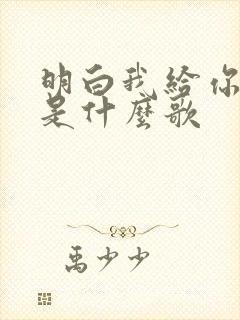 明白我给你
是什麼歌
禹少少